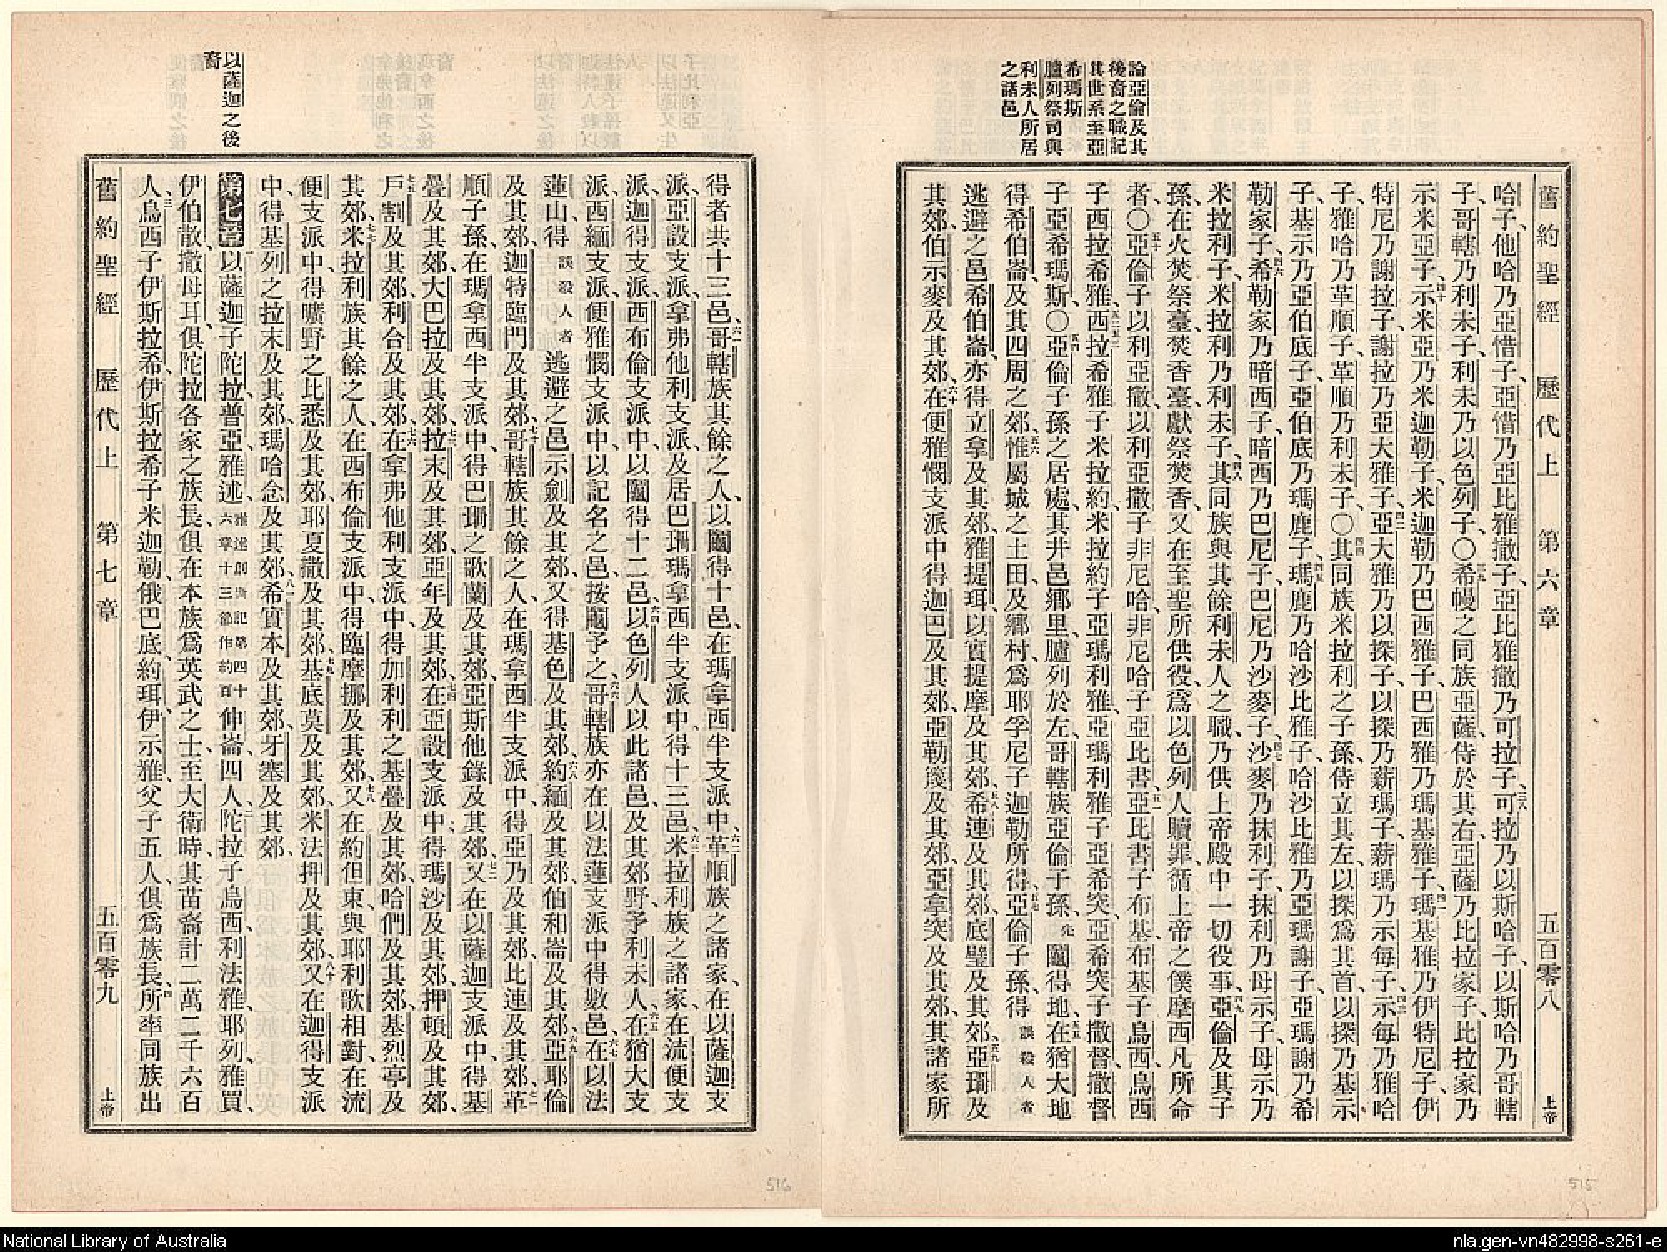 論亞倫及其
後裔之職記
其世系至亞
希瑪斯
臚列祭司與
利未人所居
之諸邑
舊約聖經 歷代上 第六章 五百零八 上帝
哈子、他哈乃亞惜子、亞惜乃亞比雅撒子、亞比雅撒乃可拉子、可拉乃以斯哈子、以斯哈乃哥轄
子、哥轄乃利未子、利未乃以色列子、〇希幔之同族亞薩、侍於其右、亞薩乃比拉家子、比拉家乃
示米亞子、示米亞乃米迦勒子、米迦勒乃巴西雅子、巴西雅乃瑪基雅子、瑪基雅乃伊特尼子、伊
特尼乃謝拉子、謝拉乃亞大雅子、亞大雅乃以探子、以探乃薪瑪子、薪瑪乃示每子、示每乃雅哈
子、雅哈乃革順子、革順乃利未子、〇其同族米拉利之子孫、侍立其左、以探爲其首、以探乃基示
子、基示乃亞伯底子、亞伯底乃瑪鹿子、瑪鹿乃哈沙比雅子、哈沙比雅乃亞瑪謝子、亞瑪謝乃希
勒家子、希勒家乃暗西子、暗西乃巴尼子、巴尼乃沙麥子、沙麥乃抹利子、抹利乃母示子、母示乃
米拉利子、米拉利乃利未子、其同族與其餘利未人之職、乃供上帝殿中一切役事、亞倫及其子
孫、在火焚祭臺、焚香臺、獻祭焚香、又在至聖所供役、爲以色列人贖罪、循上帝之僕摩西凡所命
者、〇亞倫子以利亞撒、以利亞撒子非尼哈、非尼哈子亞比書、亞比書子布基、布基子烏西、烏西
子西拉希雅、西拉希雅子米拉約、米拉約子亞瑪利雅、亞瑪利雅子亞希突、亞希突子撒督、撒督
子亞希瑪斯、〇亞倫子孫之居處、其井邑鄉里、臚列於左、哥轄族亞倫子孫、先鬮得地、在猶大地
得希伯崙、及其四周之郊、惟屬城之土田、及鄉村、爲耶孚尼子迦勒所得、亞倫子孫、得誤殺人者
逃避之邑希伯崙、亦得立拿及其郊、雅提珥、以實提摩及其郊、希連及其郊、底璧及其郊、亞珊及
其郊、伯示麥及其郊、在便雅憫支派中得迦巴及其郊、亞勒篾及其郊、亞拿突及其郊、其諸家所
以薩迦之後
裔
得者共十三邑、哥轄族其餘之人、以鬮得十邑、在瑪拿西半支派中、革順族之諸家、在以薩迦支
派、亞設支派、拿弗他利支派、及居巴珊瑪拿西半支派中、得十三邑、米拉利族之諸家、在流便支
派、迦得支派、西布倫支派中、以鬮得十二邑、以色列人以此諸邑、及其郊野、予利未人、在猶大支
派、西緬支派、便雅憫支派中、以記名之邑、按鬮予之、哥轄族亦在以法蓮支派中得數邑、在以法
蓮山、得誤殺人者逃避之邑示劍及其郊、又得基色及其郊、約緬及其郊、伯和崙及其郊、亞耶倫
及其郊、迦特臨門及其郊、哥轄族其餘之人、在瑪拿西半支派中得亞乃及其郊、比連及其郊、革
順子孫、在瑪拿西半支派中、得巴珊之歌蘭及其郊、亞斯他錄及其郊、又在以薩迦支派中、得基
疊及其郊、大巴拉及其郊、拉末及其郊、亞年及其郊、在亞設支派中得瑪沙及其郊、押頓及其郊、
戶割及其郊、利合及其郊、在拿弗他利支派中、得加利利之基疊及其郊、哈們及其郊、基烈亭及
其郊、米拉利族其餘之人、在西布倫支派中、得臨摩挪及其郊、又在約但東、與耶利歌相對、在流
便支派中、得曠野之比悉及其郊、耶夏撒及其郊、基底莫及其郊、米法押及其郊、又在迦得支派
中、得基列之拉末及其郊、瑪哈念及其郊、希實本及其郊、牙塞及其郊、
第七章 以薩迦子陀拉、普亞、雅述、雅述創世記第四十六章十三節作約百伸崙四人、陀拉子烏西、利法雅、耶列、雅買、
伊伯散、撒母耳、俱陀拉各家之族長、俱在本族爲英武之士、至大衛時、其苗裔計二萬二千六百
人、烏西子伊斯拉希、伊斯拉希子米迦勒、俄巴底、約珥、伊示雅、父子五人、俱爲族長、所率同族出
舊約聖經 歷代上 第七章 五百零九 上帝
516
515
National Library of Australia
nla.gen-vn482998-s261-e